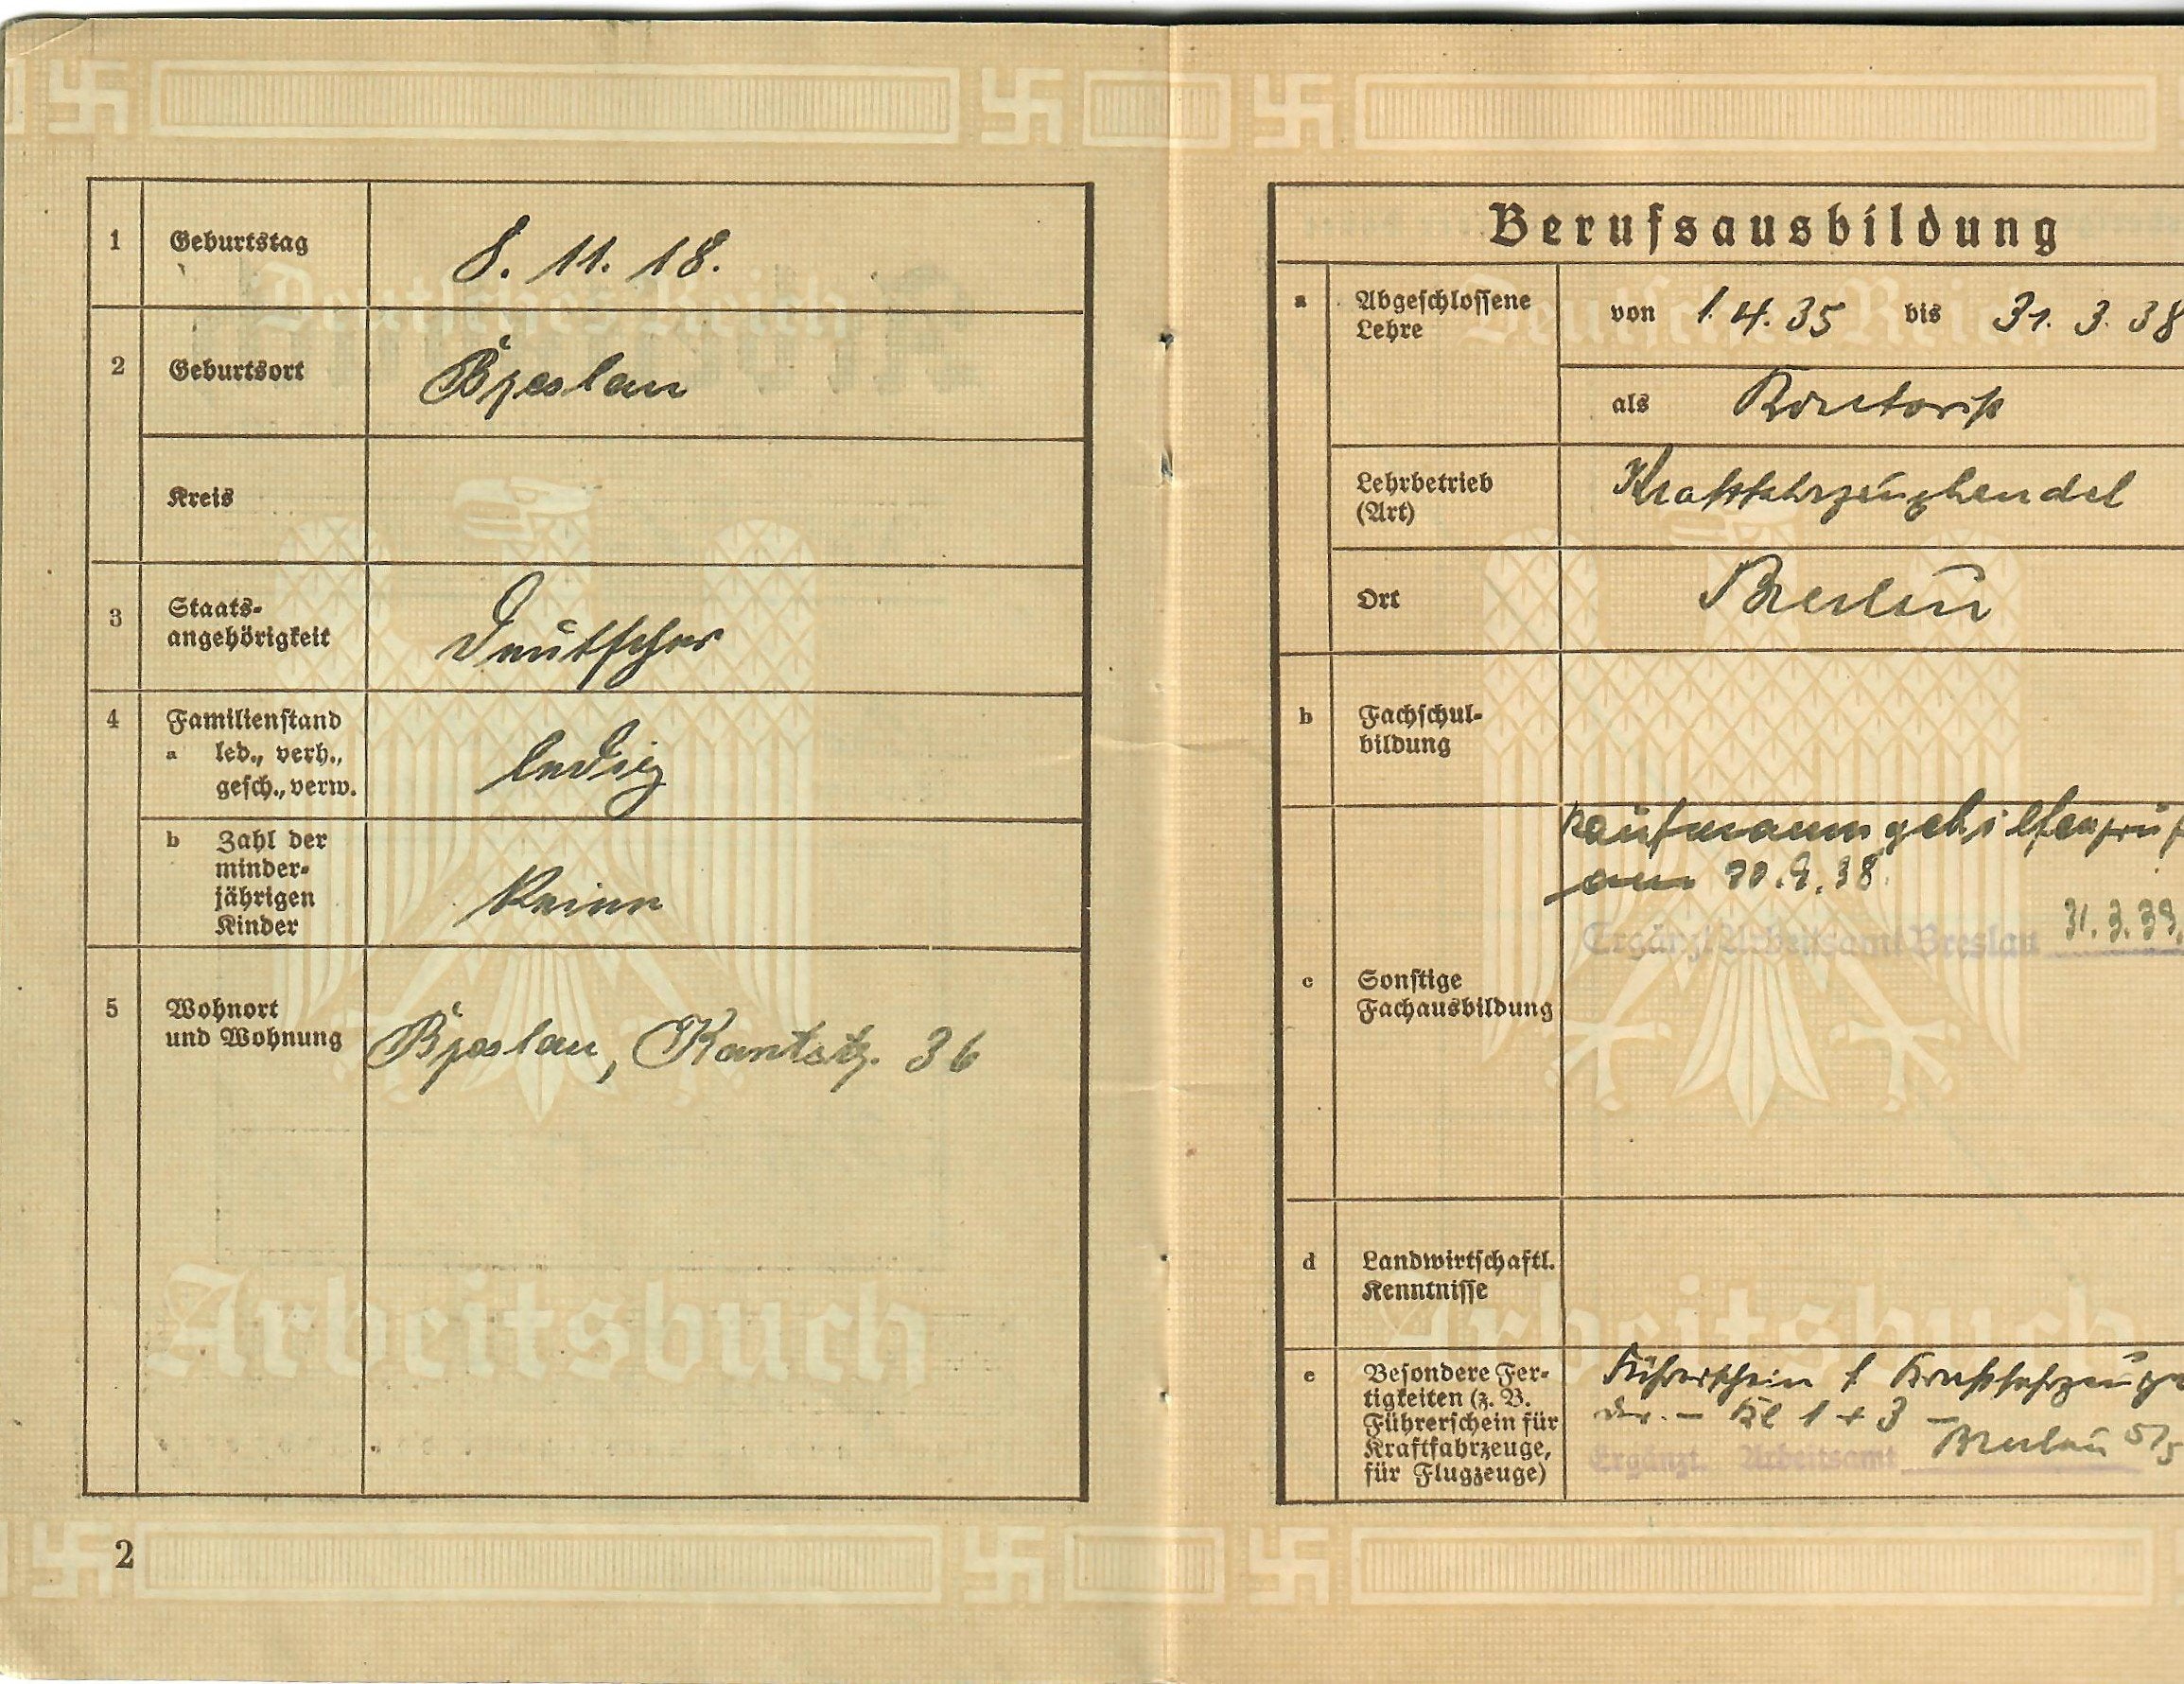 1 Geburtstag 8. 11. 18.
2 Geburtsort Breslau
Kreis
3 Staats-
angehörigkeit Deutscher
4 Familienstand
a led., verh.,
gesch., verw. ledig
b Zahl der
minder-
jährigen
Kinder keine
5 Wohnort
und Wohnung Breslau, Kantstr. 36
Deutsches Reich
Arbeitsbuch
2
Berufsausbildung
a Abgeschlossene
Lehre von 1.4.35 bis 31. 3. 38
als Kontorist
Lehrbetrieb
(Art) Kraftfahrzeughandel
Ort Breslau
b Fachschul-
bildung
Kaufmannsgehilfenprüf
am
Ergänzt Arbeitsamt Breslau 31.3.39.
c Sonstige
Fachausbildung
d Landwirtschaftl.
Kenntnisse
e Besondere Fer-
tigkeiten (z. B.
Führerschein für
Kraftfahrzeuge,
für Flugzeuge)
Führerschein f. Kraftfahrzeuge
der - Kl 1 + 3 -
Ergänzt. Arbeitsamt Breslau 5/5
Deutsches Reich
Arbeitsbuch